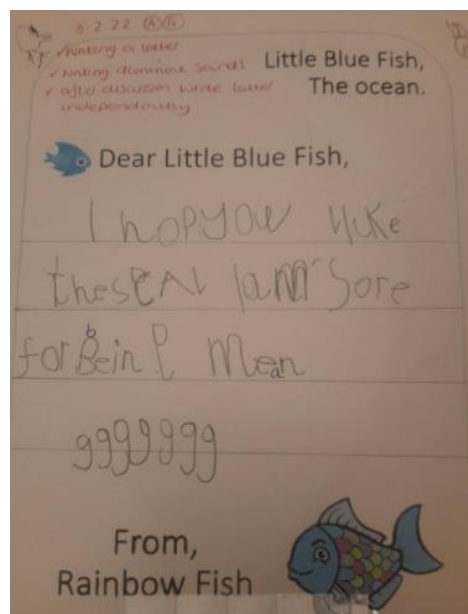 8-2.22
✓ writing a letter
✓ writing dominant sounds
✓ after discussion wrote letter
independently
Little Blue Fish,
The ocean.
Dear Little Blue Fish,
I hopyou like
thesCAL Iam Sore
for Being Mean
ggggggg
From,
Rainbow Fish